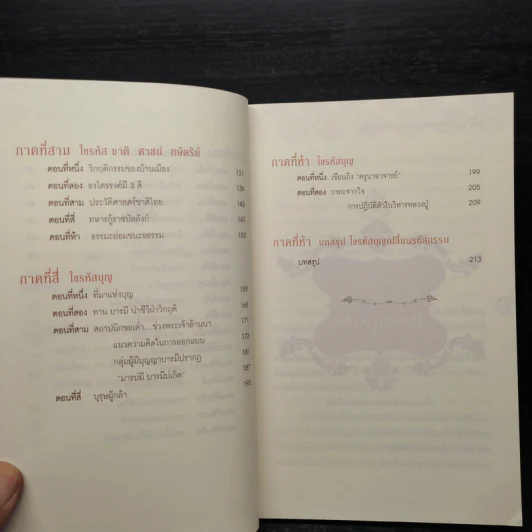 ภาคที่สาม ไขรหัส ชาติ ศาสน์ กษัตริย์
ตอนที่หนึ่ง วิกฤติกรรมของบ้านเมือง 131
ตอนที่สอง ธงไตรรงค์มี 3 สี
ตอนที่สาม ประวัติศาสตร์ชาติไทย
ตอนที่สี่ ทหารกู้ราชบัลลังก์ 147
ตอนที่ห้า ธรรมะย่อมชนะอธรรม
ภาคที่สี่ ไขรหัสบุญ
ตอนที่หนึ่ง ที่มาแห่งบุญ 159
ตอนที่สอง ทาน บารมี นำชีวีฝ่าวิกฤติ 165
ตอนที่สาม สถาปนิกขอเล่า...ช่วงพระเจ้าล้านนา 171
แนวความคิดในการออกแบบ 177
กลุ่มผู้มีบุญญาบารมีปรากฏ 181
"มารบ่มี บารมีบ่เกิด" 187
ตอนที่สี่ บุรุษผู้กล้า 195
ภาคที่ห้า ไขรหัสบุญ
ตอนที่หนึ่ง เขียนถึง "ครูบาอาจารย์" 199
ตอนที่สอง วาทะจากใจ 205
การปฏิบัติตัวในวิหารหลวงปู่ 209
ภาคที่ห้า บทสรุป ไขรหัสบุญเปลี่ยนรหัสกรรม
บทสรุป 213